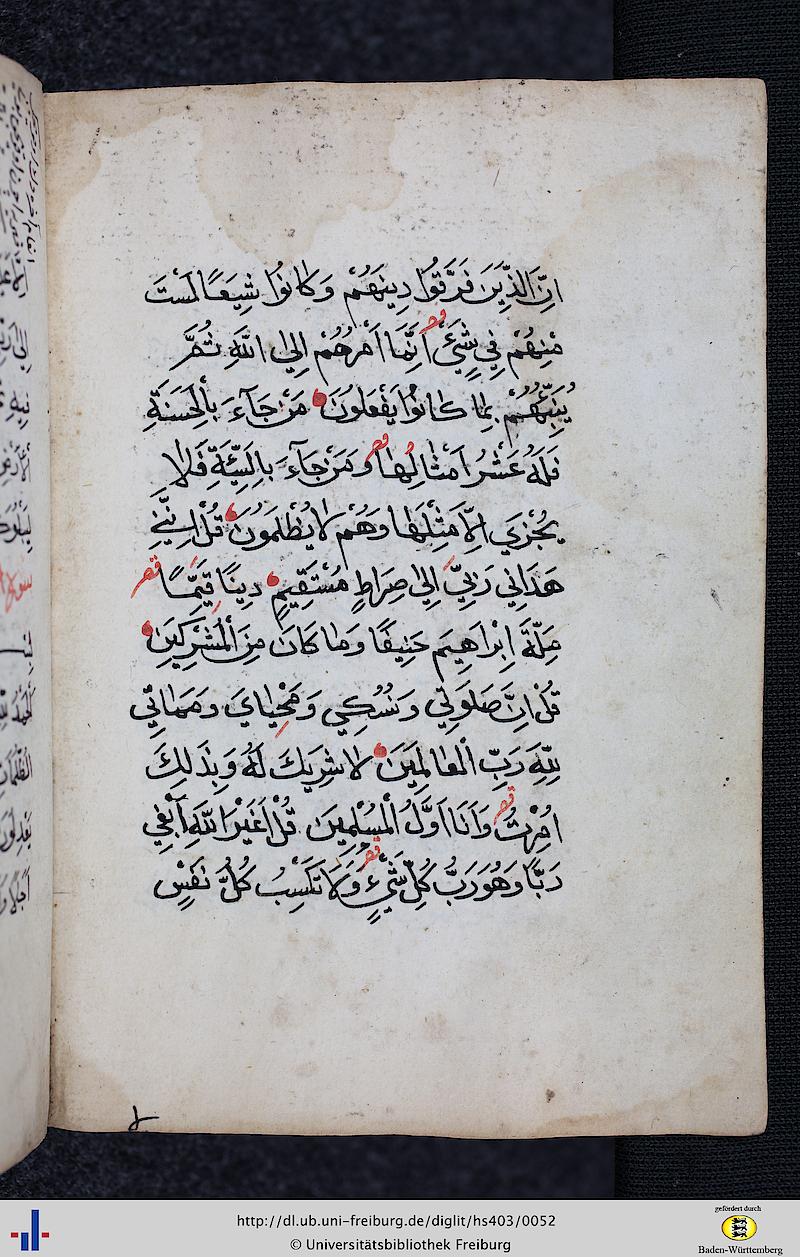 اِنَّ الَّذِينَ فَرَّقُوا دِينَهُمْ وَكَانُوا شِيَعًا لَسْتَ
مِنْهُمْ فِي شَيْءٍ اَنَّمَا اَمْرُهُمْ اِلَي اللَّهِ ثُمَّ
يُنَبِّئُهُمْ بِمَا كَانُوا يَفْعَلُونَ مَنْ جَآءَ بِالْحَسَنَةِ
فَلَهُ عَشْرُ اَمْثَالِهَا وَمَنْ جَآءَ بِالسَّيِّئَةِ فَلَا
يُجْزَي اِلَّا مِثْلَهَا وَهُمْ لَا يُظْلَمُونَ قُلْ اِنَّنِي
هَدَانِي رَبِّي اِلَي صِرَاطٍ مُسْتَقِيمٍ دِينًا قَيِّمًا
مِلَّةَ اِبْرَاهِيمَ حَنِيفًا وَمَا كَانَ مِنَ الْمُشْرِكِينَ
قُلْ اِنَّ صَلَوتِي وَنُسُكِي وَمَحْيَايَ وَمَمَاتِي
لِلَّهِ رَبِّ الْعَالَمِينَ لَا شَرِيكَ لَهُ وَبِذَلِكَ
اُمِرْتُ وَاَنَا اَوَّلُ الْمُسْلِمِينَ قُلْ اَغَيْرَ اللَّهِ اَبْغِي
رَبًّا وَهُوَ رَبُّ كُلِّ شَيْءٍ وَلَا تَكْسِبُ كُلُّ نَفْسٍ
http://dl.ub.uni-freiburg.de/diglit/hs403/0052
© Universitätsbibliothek Freiburg
gefördert durch
Baden-Württemberg